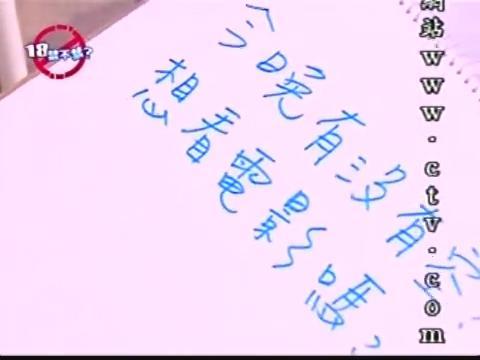 18禁不禁?
今晚有沒有空
想看電影嗎?
網站www.ctv.com